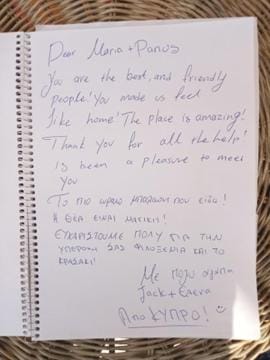 Dear Maria + Panos
You are the best, and friendly
people! You made us feel
like home! The place is amazing!
Thank you for all the help!
Is been a pleasure to meet
you
Το πιο ωραίο μπαλκόνι που είδα!
Η ΘΕΑ ΕΙΝΑΙ ΜΑΓΙΚΗ!
ΕΥΧΑΡΙΣΤΟΥΜΕ ΠΟΛΥ ΓΙΑ ΤΗΝ
ΥΠΕΡΟΧΗ ΣΑΣ ΦΙΛΟΞΕΝΙΑ ΚΑΙ ΤΟ
ΚΡΑΣΑΚΙ!
Με πολύ αγάπη
Jack + Elena
Από ΚΥΠΡΟ!